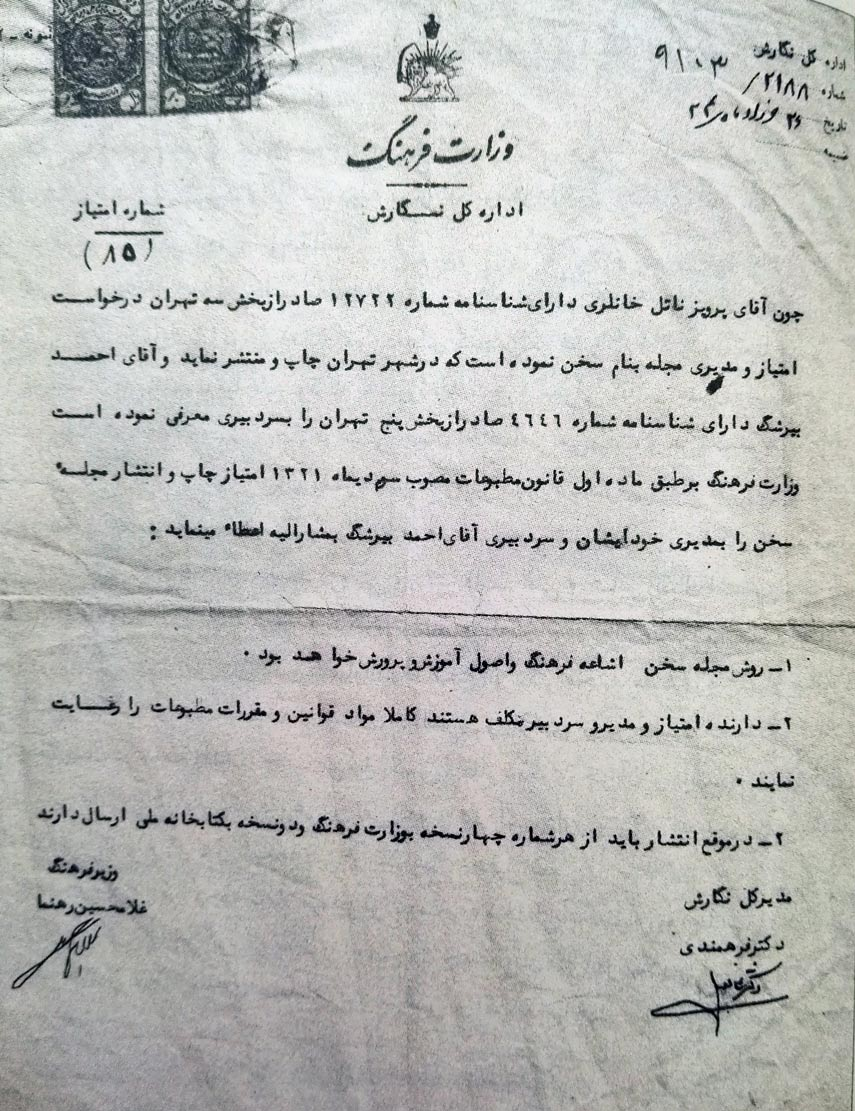 اداره کل نگارش
شماره ۲۱۸۸/ ۹۱۰۳
تاریخ ۲۶
ضمیمه
وزارت فرهنگ
اداره کل نگارش
شماره امتیاز
(۸۵)
چون آقای پرویز ناتل خانلری دارای شناسنامه شماره ۱۲۷۲۲ صادر از بخش سه تهران درخواست
امتیاز و مدیری مجله بنام سخن نموده است که در شهر تهران چاپ و منتشر نماید و آقای احمد
بیرشگ دارای شناسنامه شماره ٤٦٤٦ صادر از بخش پنج تهران را بسردبیری معرفی نموده است
وزارت فرهنگ بر طبق ماده اول قانون مطبوعات مصوب سوم دیماه ۱۳۲۱ امتیاز چاپ و انتشار مجله
سخن را بمدیری خود ایشان و سردبیری آقای احمد بیرشگ بمشارالیه اعطاء مینماید :
۱ـ روش مجله سخن اشاعه فرهنگ و اصول آموزش و پرورش خواهد بود .
۲ـ دارنده امتیاز و مدیر و سردبیر مکلف هستند کاملا مواد قوانین و مقررات مطبوعات را رعایت
نمایند .
۲ـ در موقع انتشار باید از هر شماره چهار نسخه بوزارت فرهنگ و دو نسخه بکتابخانه ملی ارسال دارند
مدیر کل نگارش
دکتر فرهمندی
وزیر فرهنگ
غلامحسین رهنما